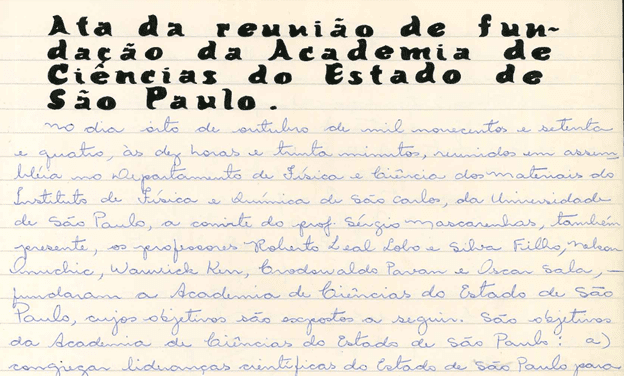 Ata da reunião de fun-
dação da Academia de
Ciências do Estado de
São Paulo.
No dia oito de outubro de mil novecentos e setenta
e quatro, às dez horas e trinta minutos, reunidos em assem-
bléia no Departamento de Física e Ciência dos materiais do
Instituto de Física e Química de São Carlos, da Universidade
de São Paulo, a convite do prof. Sérgio mascarenhas, também
presente, os professores Roberto Leal Lobo e Silva Filho, Nelson
Onuchic, Warwick Kerr, Crodowaldo Pavan e Oscar Sala, —
fundaram a Academia de Ciências do Estado de São
Paulo, cujos objetivos são expostos a seguir. São objetivos
da Academia de Ciências do Estado de São Paulo: a)
congregar lideranças científicas do Estado de São Paulo para